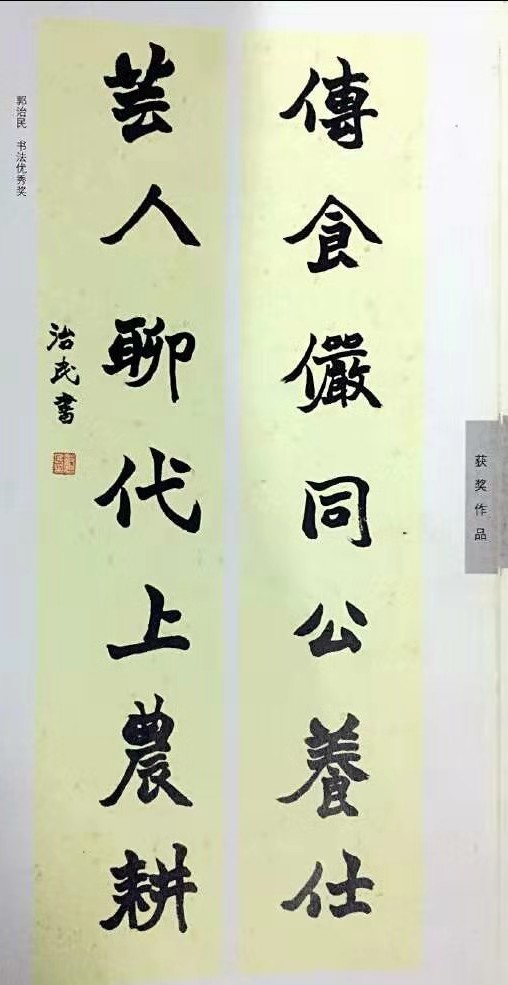 傳食儼同公養仕
芸人聊代上農耕
治民書
郭治民 书法优秀奖
获奖作品